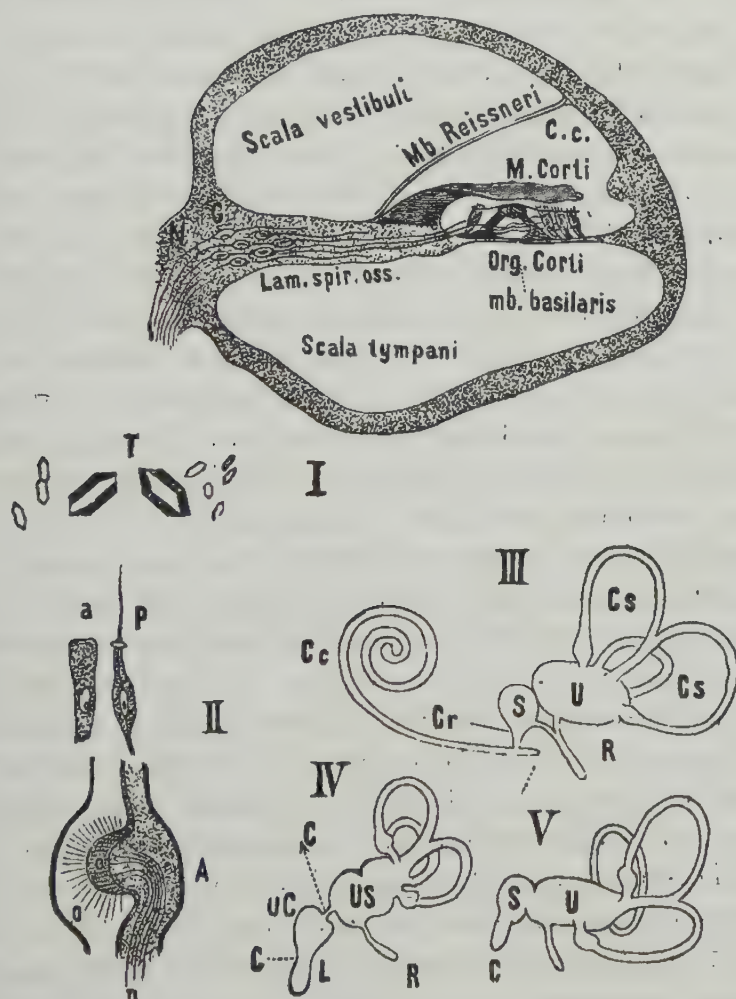 Scala vestibuli
Mb. Reissneri
C. c.
M. Corti
N
G
Lam. spir. oss.
Org. Corti
mb. basilaris
Scala tympani
T
I
III
a
P
Cs
Cc
II
S
U
Cs
Cr
R
IV
V
C
A
UC
US
S
U
a
C
L
R
C
n